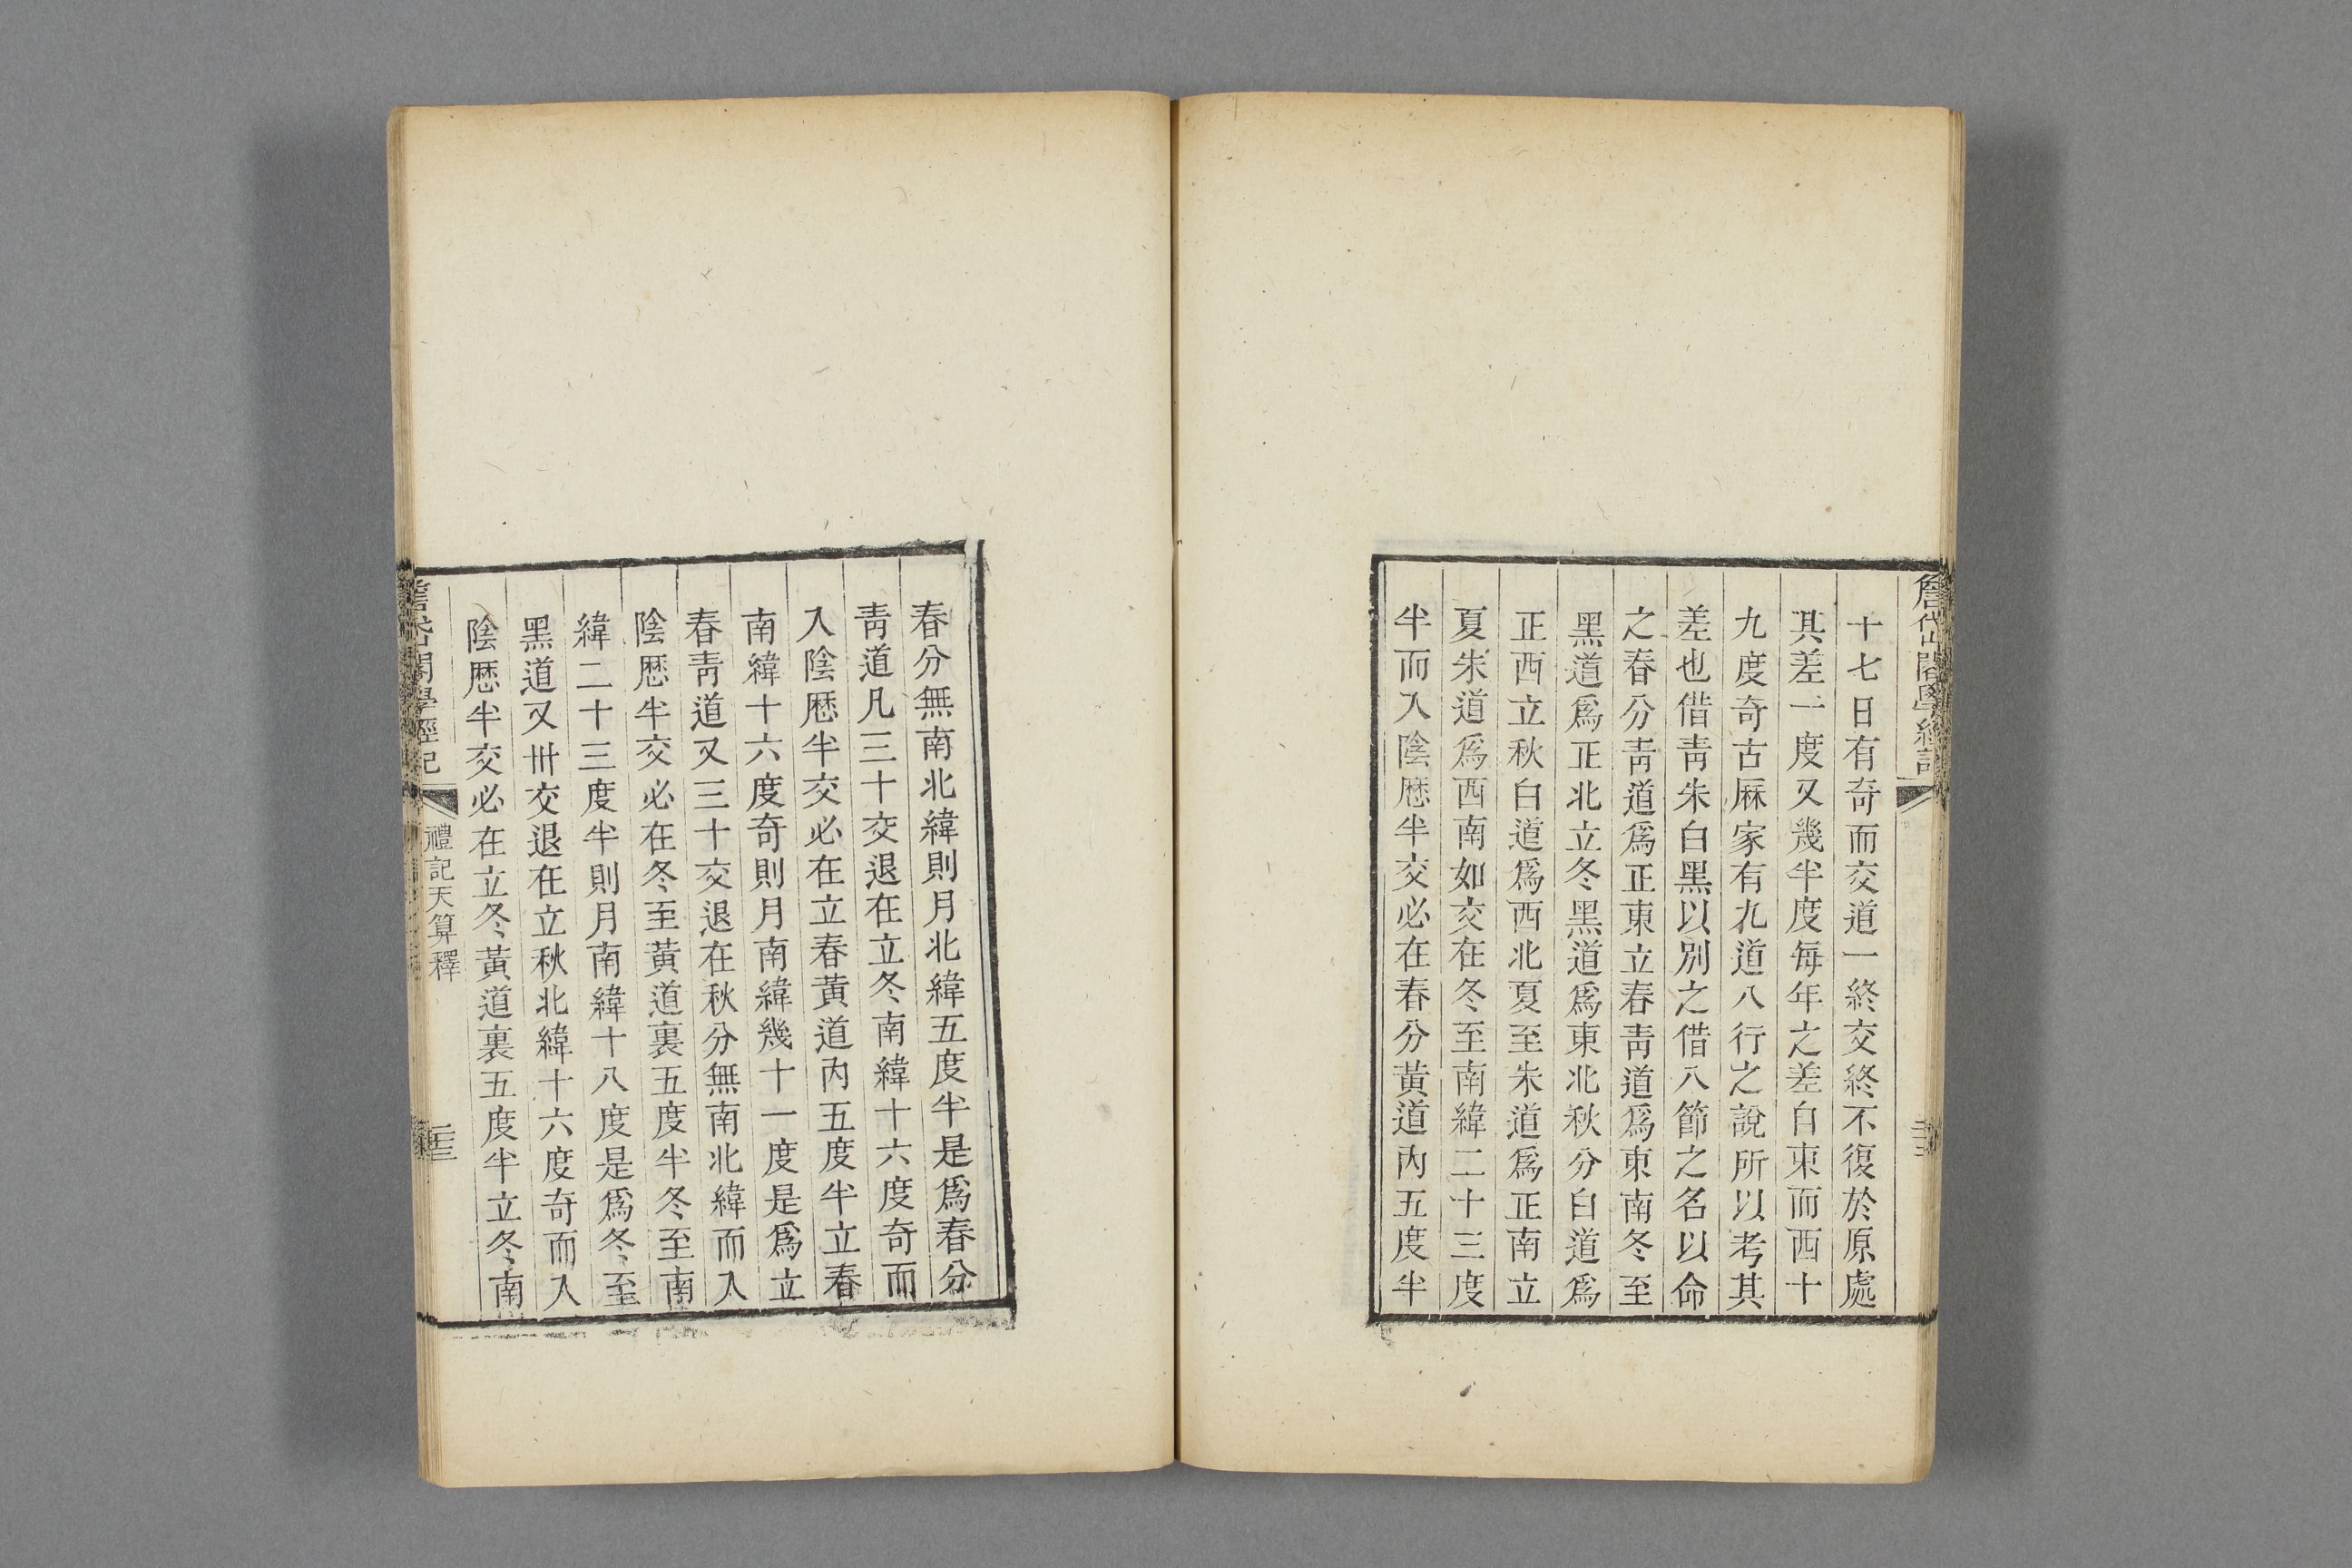 十七日有奇而交道一終交終不復於原處
其差一度又幾半度每年之差自東而西十
九度奇古厤家有九道八行之說所以考其
差也借靑朱白黑以別之借八節之名以命
之春分靑道爲正東立春靑道爲東南冬至
黑道爲正北立冬黑道爲東北秋分白道爲
正西立秋白道爲西北夏至朱道爲正南立
夏朱道爲西南如交在冬至南緯二十三度
半而入陰厯半交必在春分黃道內五度半
春分無南北緯則月北緯五度半是爲春分
靑道凡三十交退在立冬南緯十六度奇而
入陰厯半交必在立春黃道內五度半立春
南緯十六度奇則月南緯幾十一度是爲立
春靑道又三十交退在秋分無南北緯而入
陰厯半交必在冬至黃道裏五度半冬至南
緯二十三度半則月南緯十八度是爲冬至
黑道又卅交退在立秋北緯十六度奇而入
陰厯半交必在立冬黃道裏五度半立冬南
禮記天算釋